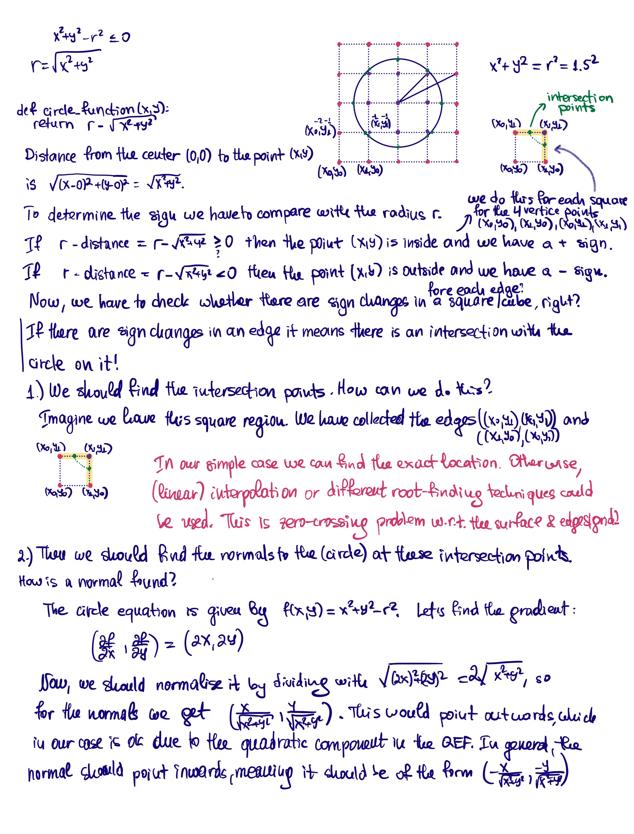 x²+y²-r² ≤ 0
r=√x²+y²
x²+y² = r² = 1.5²
def circle_function(x,y):
return r-√x²+y²
intersection points
(x₀,y₁) (x₁,y₁)
(x₀,y₀) (x₁,y₀)
Distance from the center (0,0) to the point (x,y)
is √(x-0)²+(y-0)² = √x²+y².
we do this for each square
for the 4 vertice points
To determine the sign we have to compare with the radius r.
If r-distance = r-√x²+y² ≥ 0 then the point (x,y) is inside and we have a + sign.
?
If r-distance = r-√x²+y² < 0 then the point is outside and we have a - sign.
for each edge?
Now, we have to check whether there are sign changes in a square/cube, right?
If there are sign changes in an edge it means there is an intersection with the
circle on it!
1.) We should find the intersection points. How can we do this?
Imagine we have this square region. We have collected the edges ((x₀,y₁)(x₁,y₁)) and
((x₁,y₀),(x₁,y₁))
(x₀,y₁) (x₁,y₁)
(x₀,y₀) (x₁,y₀)
In our simple case we can find the exact location. Otherwise,
(linear) interpolation or different root-finding techniques could
be used. This is zero-crossing problem w.r.t. the surface &
2.) Then we should find the normals to the (circle) at these intersection points.
How is a normal found?
The circle equation is given by f(x,y) = x²+y²-r². Let's find the gradient:
(∂f/∂x, ∂f/∂y) = (2x, 2y)
Now, we should normalise it by dividing with √(2x)²+(2y)² = 2√x²+y², so
for the normals we get (x/√x²+y², y/√x²+y²). This would point outwards, which
in our case is ok due to the quadratic component in the QEF. In general, the
normal should point inwards, meaning it should be of the form (-x/√x²+y², -y/√x²+y²)